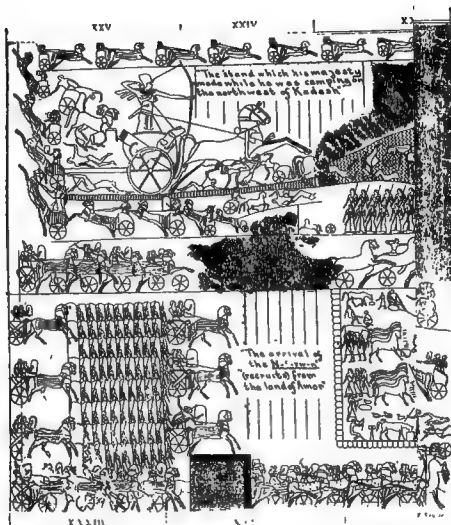 XXV
XXIV
XX
"The stand which his majesty
made while he was camping on
the northwest of Kadesh"
"The arrival of
the
(recruits) from
the land of Amor"
XXIII